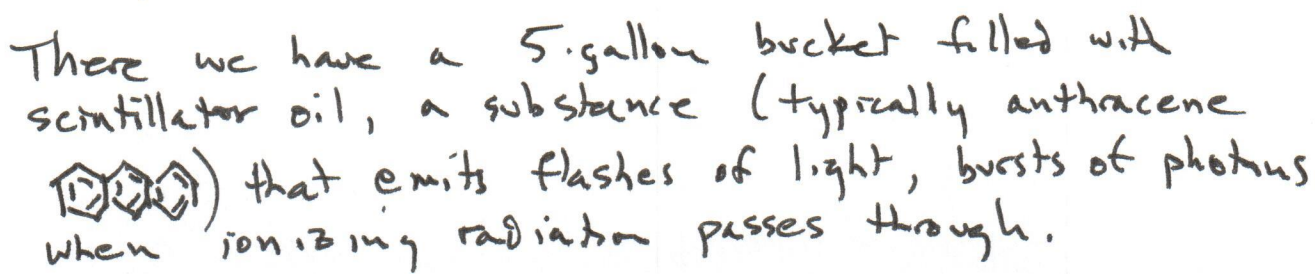 There we have a 5-gallon bucket filled with
scintillator oil, a substance (typically anthracene
) that emits flashes of light, bursts of photons
when ionizing radiation passes through.